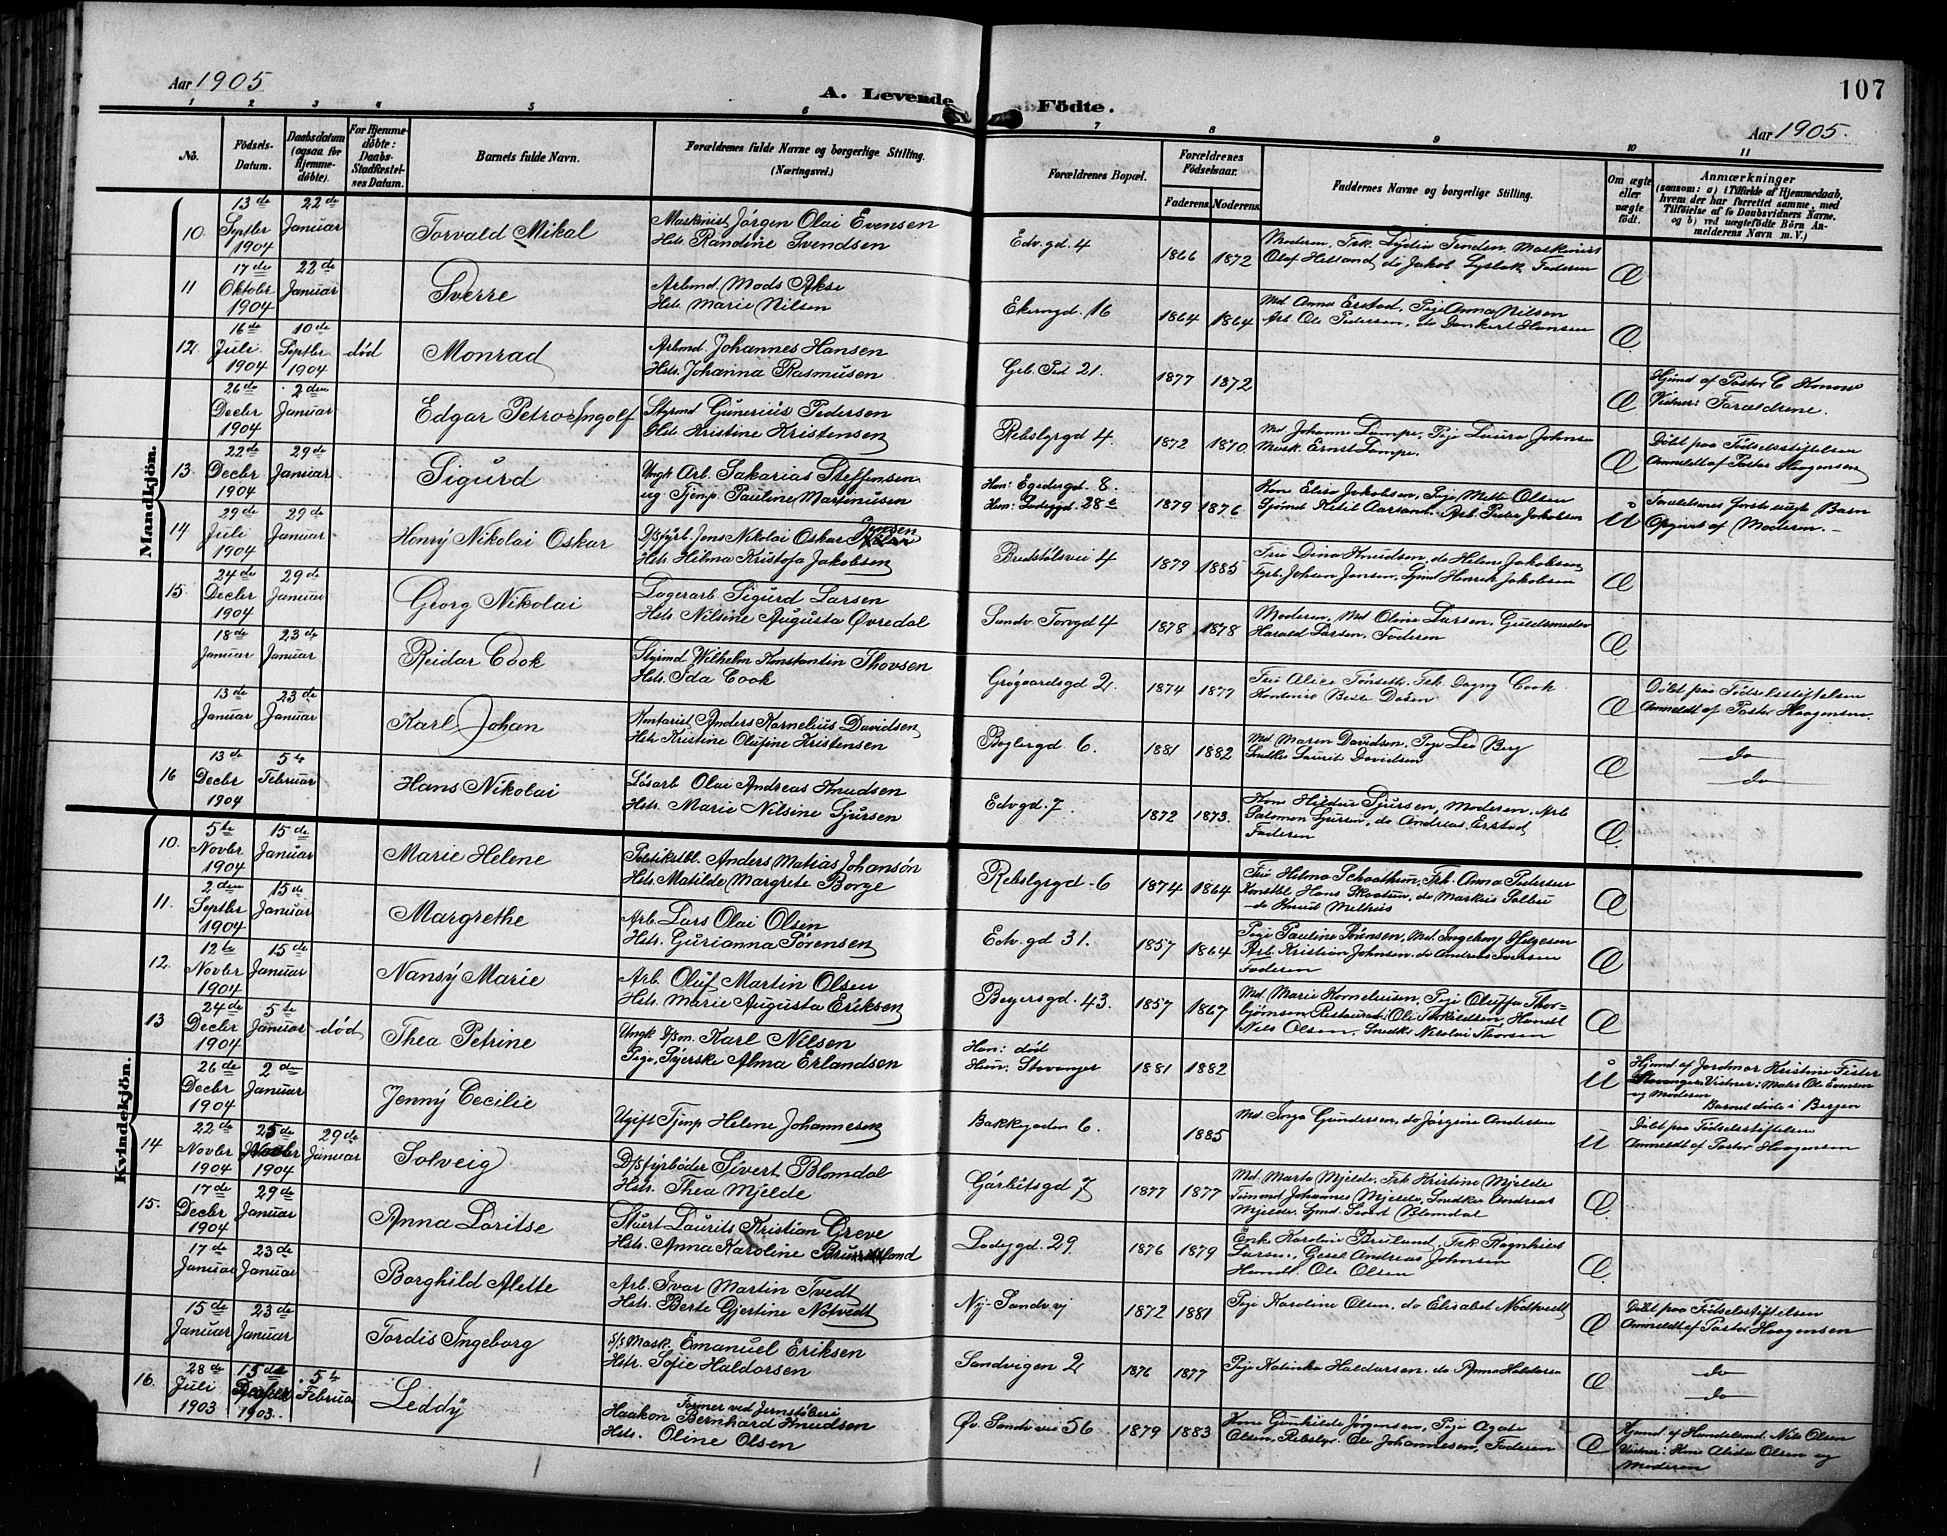 Aar 1905
A. Levende Födte.
107
Aar 1905.
1 2 3 4 5 6 7 8 9 10 11
No.
Födsels-Datum.
Daabsdatum (ogsaa for Hjemmedöbte).
For Hjemmedöbte: Daabs-Stadfæstelses Datum.
Barnets fulde Navn.
Forældrenes fulde Navne og borgerlige Stilling.
(Næringsvei.)
Forældrenes Bopæl.
Forældrenes Födselsaar.
Faderens. Moderens.
Faddernes Navne og borgerlige Stilling.
Om ægte eller uægte födt.
Anmærkninger
(saasom: a) i Tilfælde af Hjemmedaab,
hvem der har forrettet samme, med
Tilföielse af to Daabsvidners Navne,
og b) ved uægtefödte Börn An-
melderens Navn m. V.)
Mandkjön.
10 13de Septbr 1904 22de Januar Torvald Mikal
Maskinist Jörgen Olai Evensen
Hstr. Randine Svendsen
Edv.gd. 4 1866 1872 Æ
11 17de Oktobr 1904 22de Januar Sverre
Arbmd. Mads Aksn
Hstr. Marie Nilsen
16 1864 1864
Md. Anna Erstad, Pige Anna Nilsen
Arb. Ole Pedersen, do Dankert Hansen
Æ
12. 16de Juli 1904 10de Septbr 1904 död Monrad
Arbmd Johannes Hansen
Hstr. Johanna Rasmusen
21. 1877 1872 Æ
Hjmd af Pastor C
Vidner: Forældrene.
26de Decbr 1904 2den Januar Edgar Petro Ingolf
Styrmd Gunerius Pedersen
Hstr Kristine Kristensen
Rebslgrgd 4. 1872 1870
Md. Johanne Lampe, Pige Laura Johnsen
Mask. Ernst Lampe.
Æ
Döbt paa Födselsstiftelsen
Anmeldt af Pastor Haagensen
13. 22de Decbr 1904 29de Januar Sigurd
Ungk Arb. Sakarias Steffensen
ug Tjenp. Pauline Martinusen
8.
28 1879 1876
Kone Elisa Jakobsen, Pige Mette Olsen
Sjömd Ketil Aarsand. Arb. Peder Jakobsen
U
Forældrenes förste uægte Barn
Opgivet af Moderen.
14 29de Juli 1904 29de Januar Henry Nikolai Oskar
D/sfyrb. Jens Nikolai Oskar Jensen
Hstr. Hilma Kristofa Jakobsen
Bredstölsvei 4 1879 1885
Fru Dina Knudsen, do Helene Jakobsen
Fyrb. Johan Jensen, Sjmd Henrik Jakobsen
Æ
15. 24de Decbr 1904 29de Januar Georg Nikolai
Lagerarb Sigurd Larsen
Hstr. Nilsine Augusta Øvredal
Sandv. Torvgd 4 1878 1878
Moderen, Md Oline Larsen, Guldsmed
Harald Larsen, Faderen
Æ
18de Januar 23de Januar Reidar Cook
Styrmd Wilhelm Konstantin Thovsen
Hstr. Ida Cook
2. 1874 1879
Fru Alice Tönseth, Frk. Dagny Cook.
Æ
Döbt paa Födselsstiftelsen
Anmeldt af Pastor Haagensen.
13de Januar 23de Januar Karl Johan
Kontorist Anders Kornelius Davidsen
Hstr Kristine Olufine Kristensen
Boglergd 6. 1881 1882
Md Maren Davidsen, Pige Lea Berg
Snedker Laurits Davidsen
Æ
do
do
16 13de Decbr 1904 5te Februar Hans Nikolai
Lösarb Olai Andreas Knudsen
Hstr. Marie Nilsine Sjursen
Edvgd. 7. 1872 1873.
Kone Hildur Sjursen, Moderen, Arb
Salomon Sjursen, do Andreas Erstad,
Faderen
Æ
Kvindekjön.
10. 5te Novbr 1904 15de Januar Marie Helene
Politikstbl. Anders Matias Johansön
Hstr. Matilde Margrete Borge
Rebslgrgd. 6 1874 1864
Fru Helma Schaathun, Frk. Anna Pedersen
Konstbl Hans Skaatun, do Markus Solbu
do Knud Melhus
Æ
11. 2den Septbr 1904 15de Januar Margrethe
Arb. Lars Olai Olsen
Hstr. Gurianna Sörensen
Edv.gd 31. 1857 1864
Pige Pauline Sörensen, Md. Ingeborg Helgesen
Arb. Kristian Johnsen, do Andreas Iversen
Faderen
Æ
12. 12te Novbr 1904 15de Januar Nansy Marie
Arb. Oluf Martin Olsen
Hstr. Marie Augusta Eriksen
Beyersgd. 43. 1857 1867
Md. Marie Korneliusen, Pige Oluffa Thor-
björnsen, Restaurat. Ole Torkildsen, Handl
Nils Olsen, Snedker Nicolai Thorsen
Æ
13 24de Decbr 1904 5te Januar död Thea Petrine
Ungk D/sm. Karl Nilsen
Pige, Syerske Alma Erlandsen
Han: död
Hun: Stavanger 1881 1882 U
Hjmd af Jordmor Kristine Fister
Stavanger. Vidner: Mater Ole Evensen
og Moderen
Barnet döde i Bergen
26de Decbr 1904 2den Januar Jenny Cecilie
Ugift Tjenp Helene Johannesen
Bakkegaden 6. 1885
Md. Inga Gundersen, do Jörgine Andersen
U
Döbt paa Födselsstiftelsen
Anmeldt af Pastor Haagensen
14 22de Novbr 1904 25de Novbr 1904 29de Januar Solveig
D/sfyrböder Sivert Blomdal
Hstr. Thea Mjelde
7 1877 1877
Md. Marta Mjelde, Frk Kristine Mjelde
Tömmd Johannes Mjelde, Snedker Andreas
Mjelde, Sjmd. Sivert Blomdal
Æ
15. 17de Decbr 1904 29de Januar Anna Loritse
Stuert Laurits Kristian Greve
Hstr. Anna Karoline Bruland
Ladegd. 29. 1876 1879
Enke Karoline Bruland, Frk Ragnhild
Larsen, Gesel Andreas Johnsen
Handl. Ole Olsen
Æ
17de Januar 23de Januar Borghild Alette
Arb. Ivar Martin Tvedt
Hstr. Berte Gjertine Nøtvedt
Ny-Sandv.vj 1872 1881
Pige Karoline Olsen, do Elisabet Nødtvedt
Æ
Döbt paa Födselsstiftelsen
Anmeldt af Pastor Haagensen
15de Januar 23de Januar Tordis Ingeborg
S/s Mask. Emanuel Eriksen
Hstr. Sofie Haldorsen
Sandvigen 2 1876 1877
Pige Katinka Haldorsen, do Anna Haldorsen
Æ
do
do
16. 28de Juli 1903 15de 1903. 5te Februar Leddy
Former ved Jernstöberi
Haakon Bernhard Knudsen
Hstr. Oline Olsen
Øv. Sandvvei 56 1879 1883
Kone Gunhilde Jörgensen, Pige Agate
Olsen, Rebslgr. Ole Johannesen, Faderen
Æ
Hjmd. af Handelsmd. Nils Olsen
Vidner: Kone Alida Olsen og
Moderen